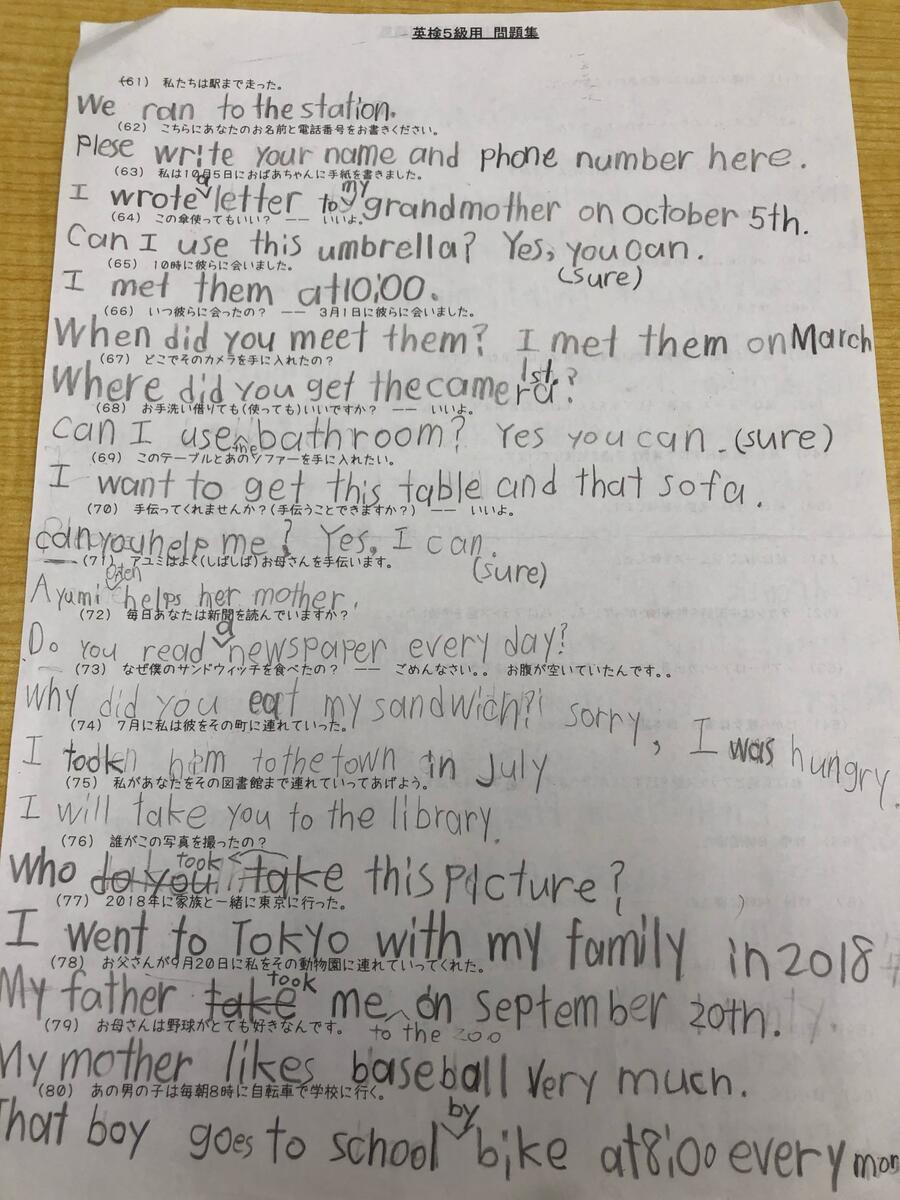 英検5級用 問題集
(61) 私たちは駅まで走った。
We ran to the station.
(62) こちらにあなたのお名前と電話番号をお書きください。
Plese write your name and phone number here.
(63) 私は10月5日におばあちゃんに手紙を書きました。
I wrote a letter to my grandmother on October 5th.
(64) この傘使ってもいい? ―― いいよ。
Can I use this umbrella? Yes, you can.
(sure)
(65) 10時に彼らに会いました。
I met them at 10:00.
(66) いつ彼らに会ったの? ―― 3月1日に彼らに会いました。
When did you meet them? I met them on March
1st.
(67) どこでそのカメラを手に入れたの?
Where did you get the camera?
(68) お手洗い借りても(使っても)いいですか? ―― いいよ。
Can I use the bathroom? Yes you can. (sure)
(69) このテーブルとあのソファーを手に入れたい。
I want to get this table and that sofa.
(70) 手伝ってくれませんか?(手伝うことできますか?) ―― いいよ。
can you help me? Yes, I can.
(sure)
(71) アユミはよく(しばしば)お母さんを手伝います。
Ayumi often helps her mother.
(72) 毎日あなたは新聞を読んでいますか?
Do you read a newspaper every day?
(73) なぜ僕のサンドウィッチを食べたの? ―― ごめんなさい。。 お腹が空いていたんです。。
Why did you eat my sandwich? sorry, I was hungry.
(74) 7月に私は彼をその町に連れていった。
I took him to the town in July
(75) 私があなたをその図書館まで連れていってあげよう。
I will take you to the library.
(76) 誰がこの写真を撮ったの?
Who do you take took this picture?
(77) 2018年に家族と一緒に東京に行った。
I went to Tokyo with my family in 2018
(78) お父さんが9月20日に私をその動物園に連れていってくれた。
My father take took me to the zoo on September 20th.
(79) お母さんは野球がとても好きなんです。
My mother likes baseball very much.
(80) あの男の子は毎朝8時に自転車で学校に行く。
That boy goes to school by bike at 8:00 every mor